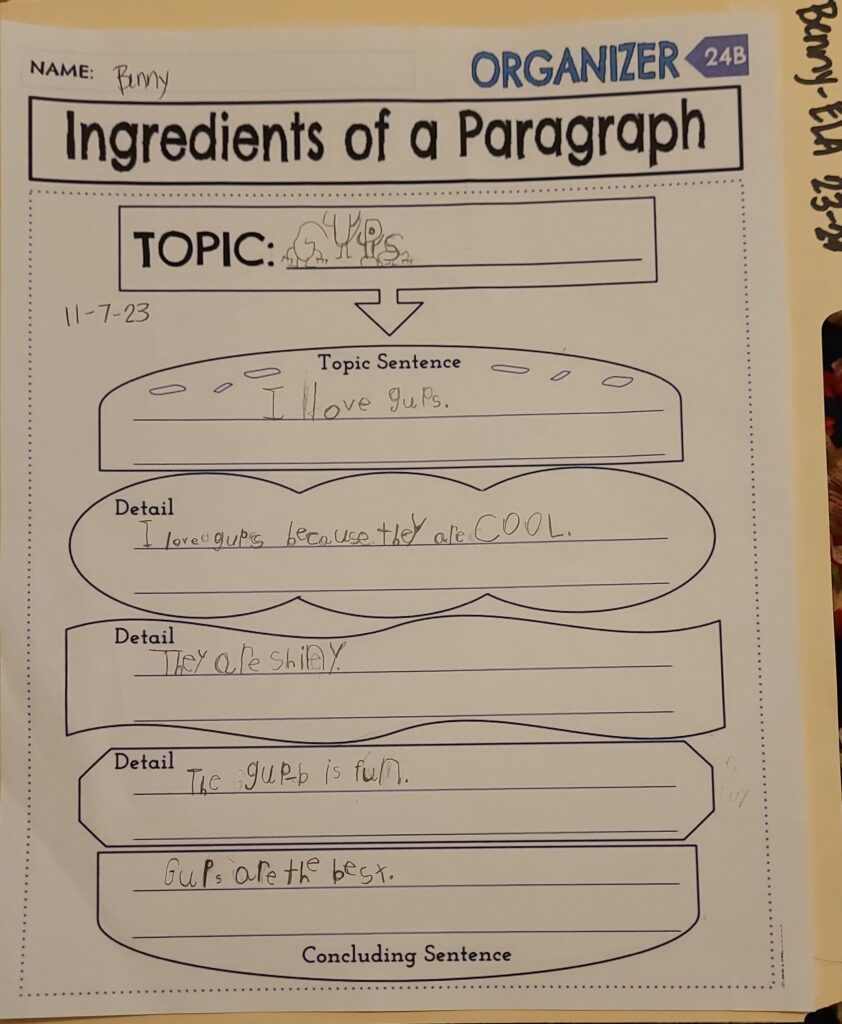 NAME: Benny
ORGANIZER 24B
Ingredients of a Paragraph
TOPIC: GUPs
11-7-23
Topic Sentence
I love gups.
Detail
I love gups because they are COOL.
Detail
They are shiny.
Detail
The gup-b is fun.
Gups are the best.
Concluding Sentence
Benny-ELA 23-24